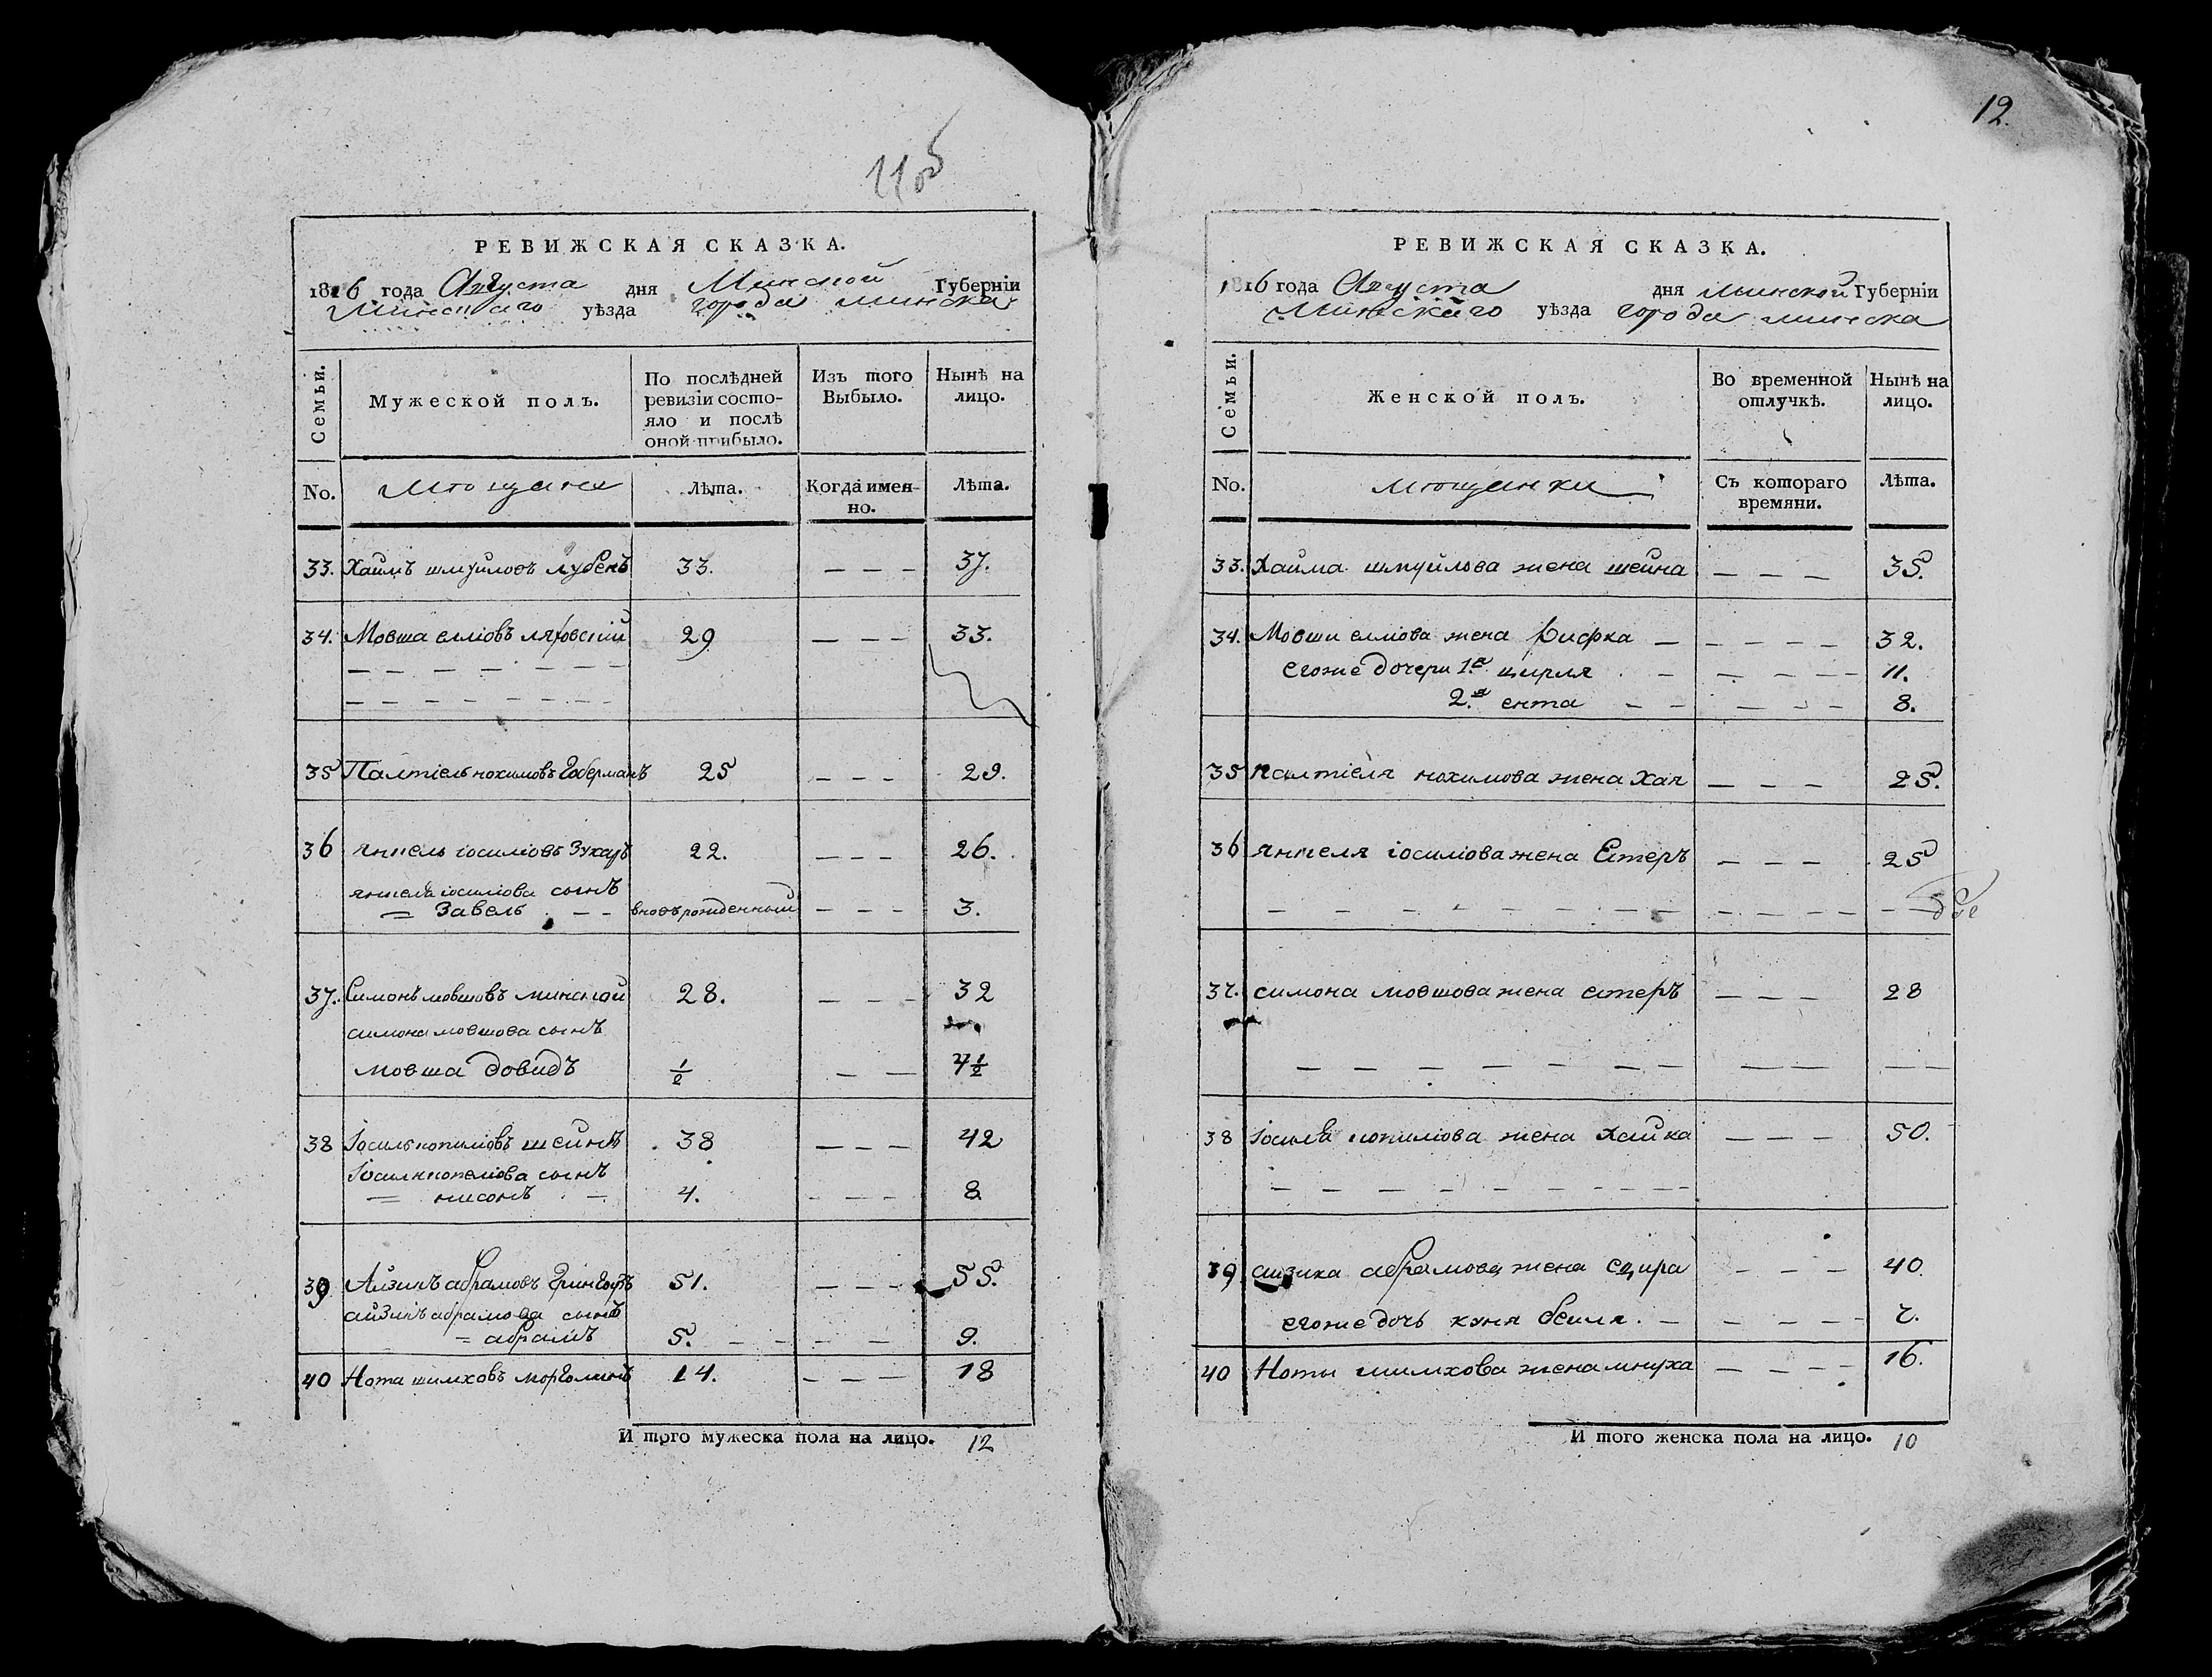 11об
РЕВИЖСКАЯ СКАЗКА.
1816 года Августа дня Минской Губерніи
Минскаго уѣзда города минска
Семьи.
Мужеской полъ.
По послѣдней ревизіи состо-
яло и послѣ
оной прибыло.
Изъ того
Выбыло.
Нынѣ на
лицо.
No. Мѣщане Лѣта. Когда имен-
но. Лѣта.
33. Хаимъ шмуиловъ лубенъ 33. — — — 37.
34. Мовша елліовъ ляховскій 29 — — — 33.
35 Палтіель нохимовъ Гоберманъ 25 — — — 29.
36 янкель іосиліовъ 22. — — — 26.
янкеля іосиліова сынъ
= Завель — — вновъ рожденный — — — 3.
37. Симонъ мовшовъ минской 28. — — — 32
симона мовшова сынъ
мовша довидъ 1/2 — — 4 1/2
38 Іосиль копиліовъ шейнъ 38 — — — 42
Іосиля копеліова сынъ
= нисонъ — 4. — — — 8.
39 Айзикъ абрамовъ 51. — — — 55.
айзика абрамова сынъ
= абрамъ 5. — — — — 9.
40 Нота шимховъ морголинъ 14. — — — 18
И того мужеска пола на лицо. 12
12.
РЕВИЖСКАЯ СКАЗКА.
1816 года Августа дня минской Губерніи
Минскаго уѣзда города минска
Семьи.
Женской полъ.
Во временной
отлучкѣ.
Нынѣ на
лицо.
No. мѣщанки Съ котораго
времяни. Лѣта.
33. Хаима шмуйлова жена шейна — — — 35.
34. Мовши елліова жена рифка — — — — — 32.
егоже дочери 1я цирля — — — — 11.
2я ента — — — — — 8.
35 палтіеля нохимова жена Хая — — — 25.
36 янкеля іосиліова жена Естеръ — — — 25
37. симона мовшова жена естеръ — — — 28
38 іосиля копиліова жена хайка — — — 50.
39 айзика абрамова жена сцира — — — 40.
егоже дочь куня бейля. — — — — — 7.
40 Ноты шимхова жена мнуха — — — — 16.
И того женска пола на лицо. 10